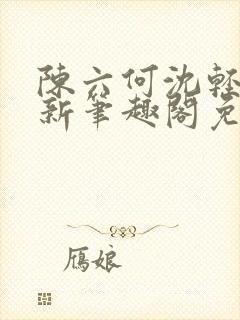 陳六何沈輕
新筆趣閣免
雁娘